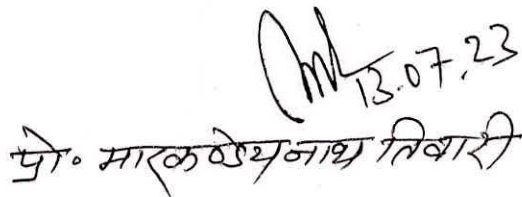 13.07.23
प्रो. मारकण्डेयनाथ तिवारी